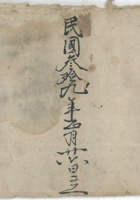 民國叁拾九年五月廿四日立